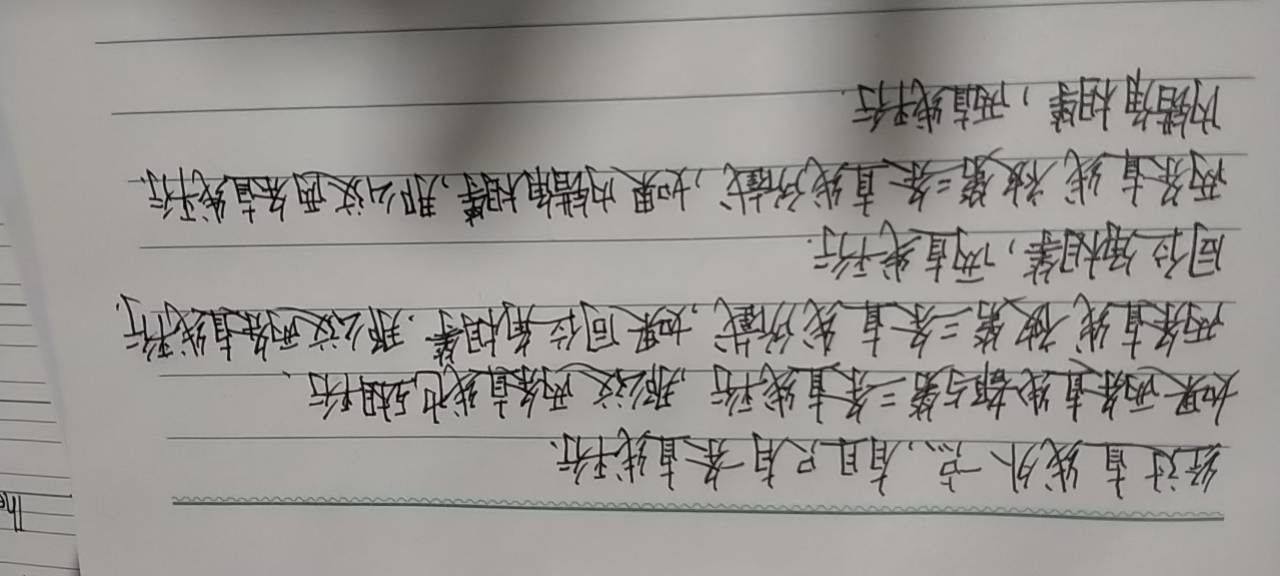 经过直线外一点,有且只有一条直线平行.
如果两条直线都与第三条直线平行,那么这两条直线也互相平行.
两条直线被第三条直线所截,如果同位角相等.那么这两条直线平行.
同位角相等,两直线平行.
两条直线被第三条直线所截,如果内错角相等,那么这两条直线平行.
内错角相等,两直线平行.
The